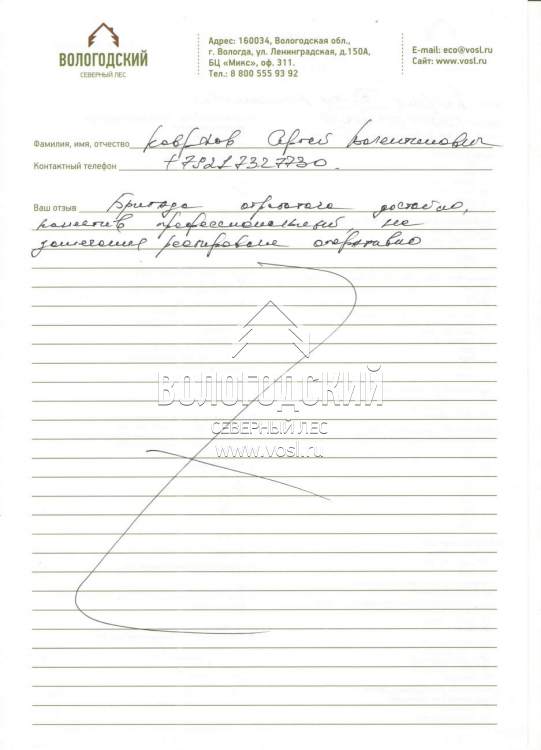 ВОЛОГОДСКИЙ
СЕВЕРНЫЙ ЛЕС
Адрес: 160034, Вологодская обл.,
г. Вологда, ул. Ленинградская, д.150А,
БЦ «Микс», оф. 311.
Тел.: 8 800 555 93 92
E-mail: eco@vosl.ru
Сайт: www.vosl.ru
Фамилия, имя, отчество Сергей Валентинович
Контактный телефон +79217327730.
Ваш отзыв Бригада отработала достойно,
коллектив профессиональный, на
замечания реагировали оперативно
ВОЛОГОДСКИЙ
СЕВЕРНЫЙ ЛЕС
www.vosl.ru